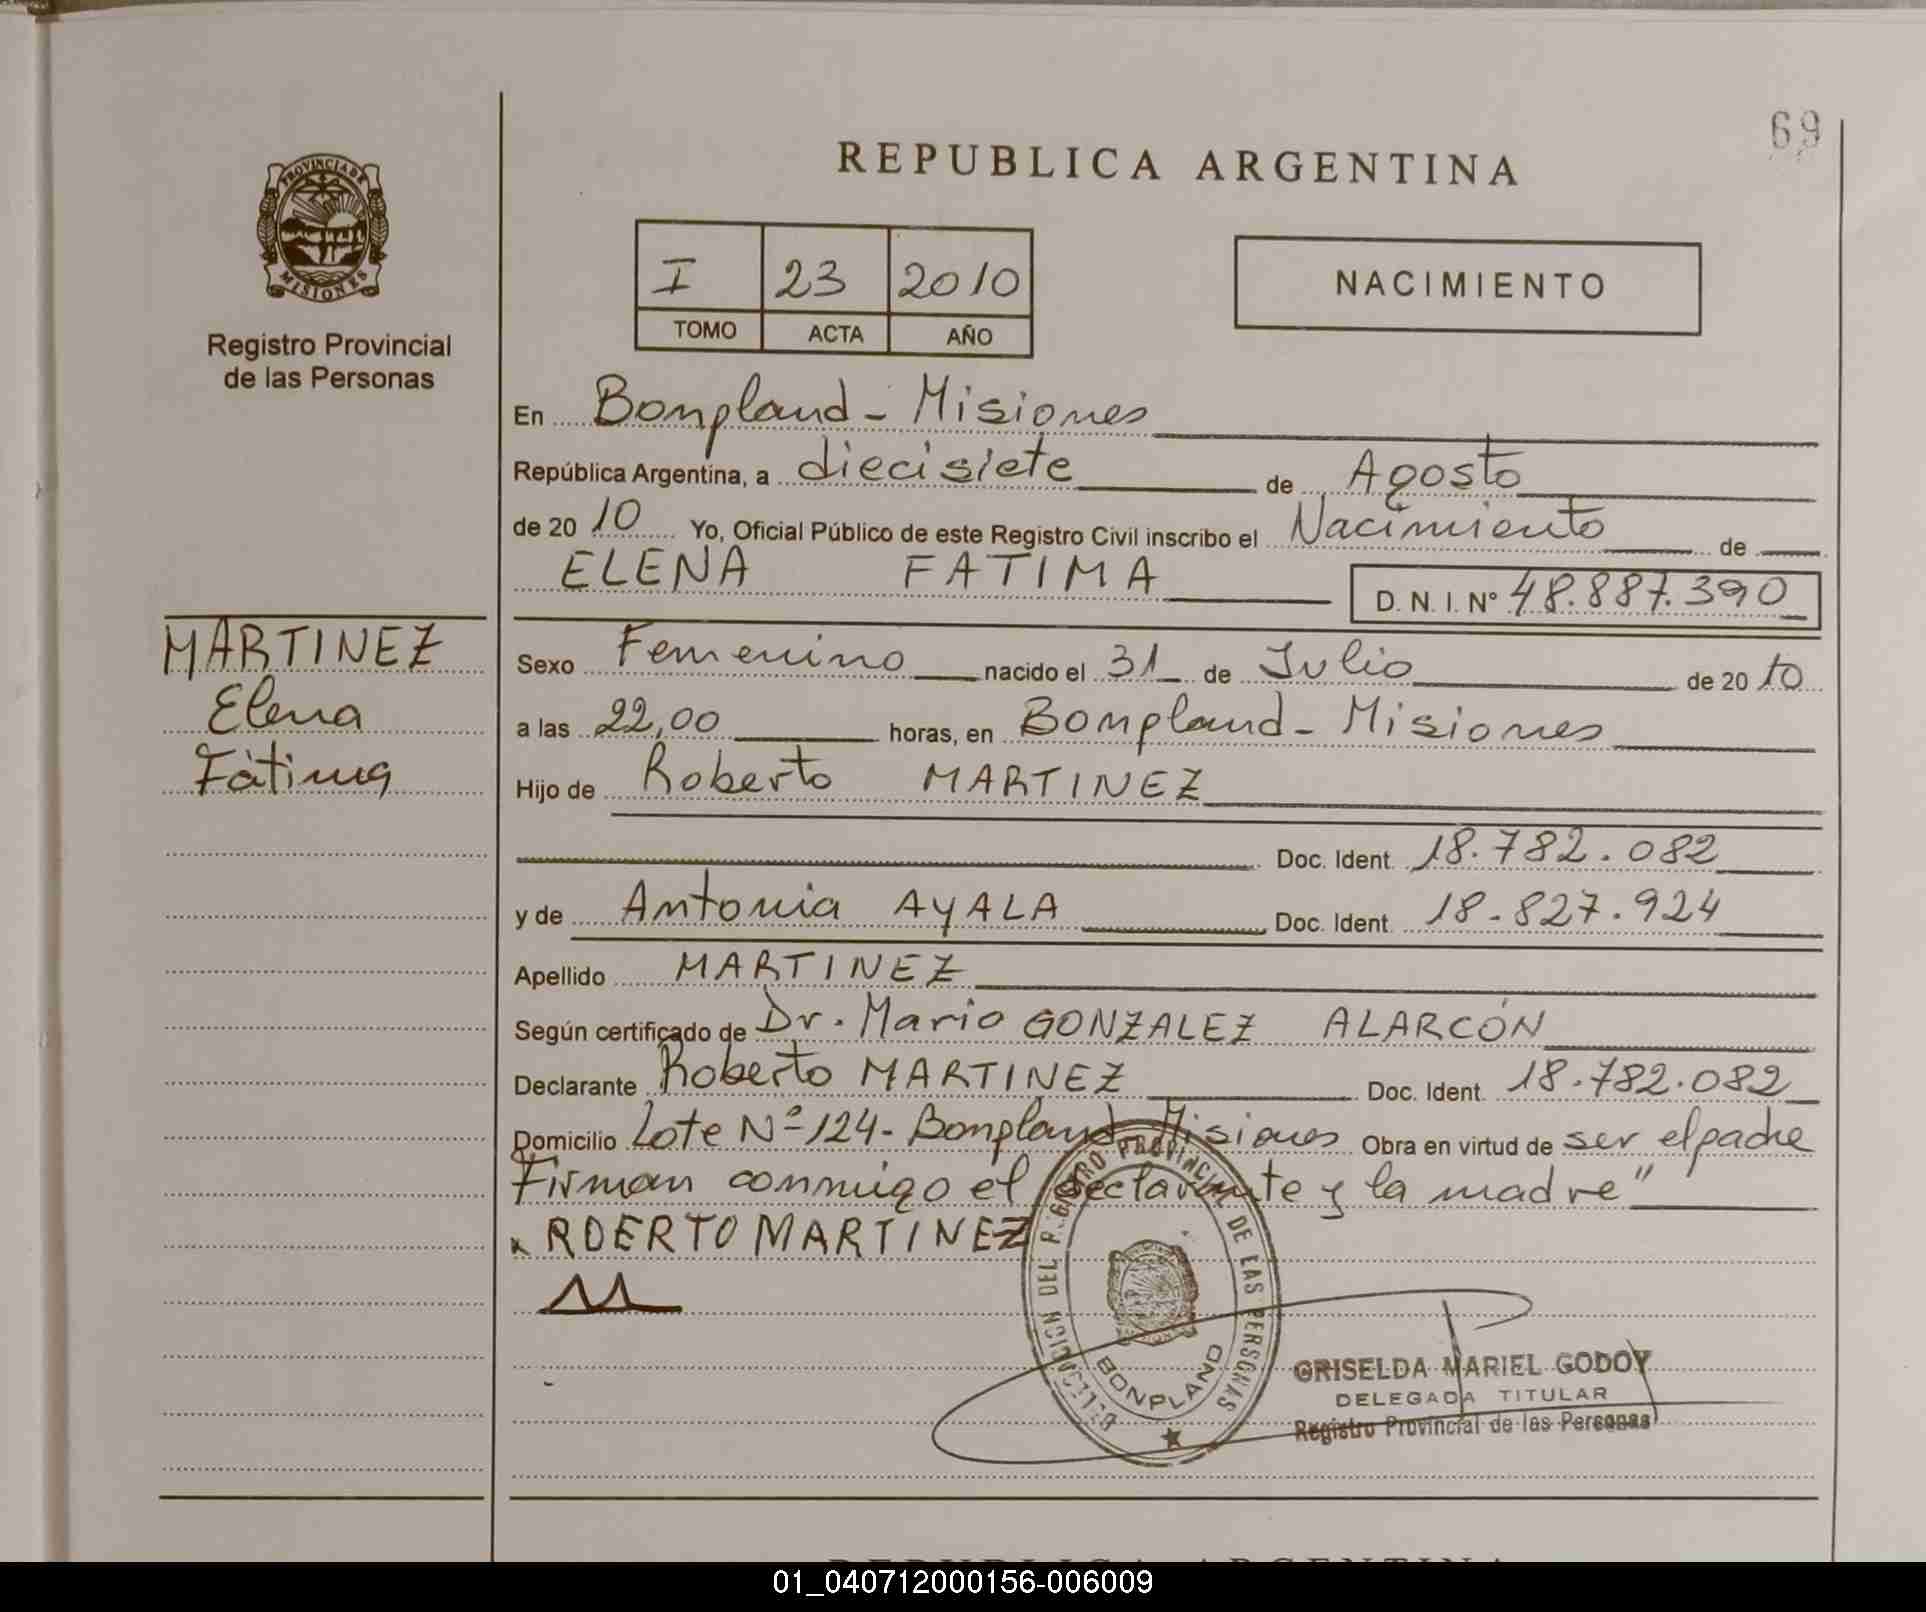 69
REPUBLICA ARGENTINA
PROVINCIA DE
MISIONES
Registro Provincial
de las Personas
I 23 2010
TOMO ACTA AÑO
NACIMIENTO
En Bonpland - Misiones
República Argentina, a diecisiete de Agosto
de 20 10 Yo, Oficial Público de este Registro Civil inscribo el Nacimiento de
ELENA FATIMA D. N. I. N° 48.887.390
MARTINEZ
Elena
Fátima
Sexo Femenino nacido el 31 de Julio de 20 10
a las 22,00 horas, en Bonpland - Misiones
Hijo de Roberto MARTINEZ
Doc. Ident. 18.782.082
y de Antonia AYALA Doc. Ident. 18.827.924
Apellido MARTINEZ
Según certificado de Dr. Mario GONZALEZ ALARCÓN
Declarante Roberto MARTINEZ Doc. Ident. 18.782.082
Domicilio Lote Nº 124 - Bonpland Misiones Obra en virtud de ser el padre
Firman conmigo el declarante y la madre"
x ROERTO MARTINEZ
DELEGACION DEL REGISTRO PROVINCIAL DE LAS PERSONAS
BONPLAND
GRISELDA MARIEL GODOY
DELEGADA TITULAR
Registro Provincial de las Personas
REPUBLICA ARGENTINA
01_040712000156-006009